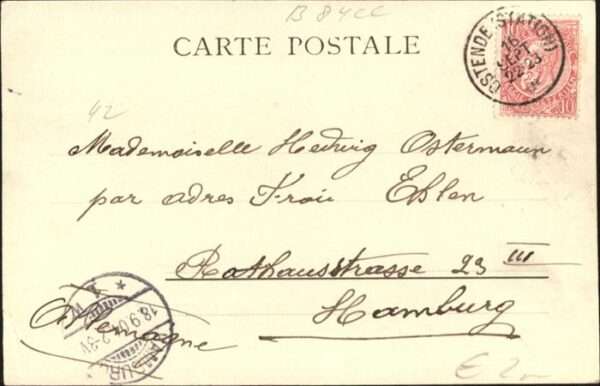 B 84cc
CARTE POSTALE
OSTENDE (STATION)
16
SEPT
22-23
10
42
Mademoiselle Hedwig Ostermann
par adres Frau Ehlen
Rathausstrasse 23 III
Hamburg
Allemagne
18.9.04. 2-3N